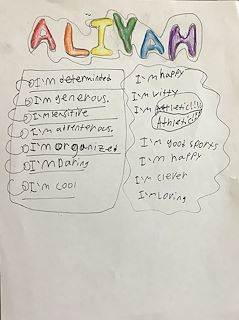 ALIYAH
I'm determinted
I'm generous.
I'm sensitive
I'm attenterous.
I'm organized
I'm Daring
I'm cool
I'm happy
I'm witty
I'm
Athletic
I'm good sports
I'm happy
I'm clever
I'm loving